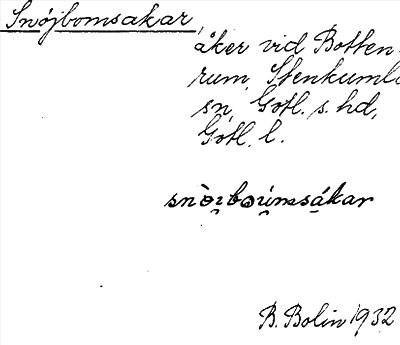 Snöjbomsakar,
åker vid Botten-
rum, Stenkumla
sn, Gotl. s. hd,
Gotl. l.
B. Bolin 1932